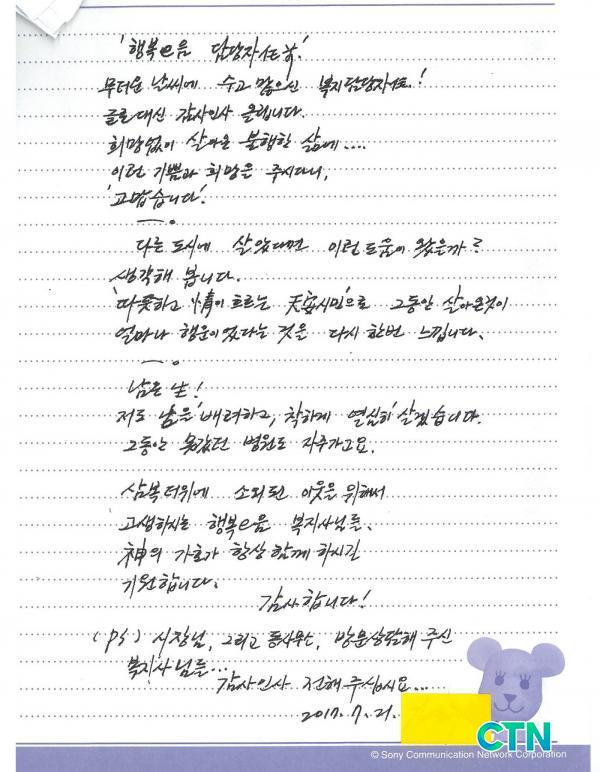 '행복e음 담당자님께.'
무더운 날씨에 수고 많으신 복지담당자님!
글로 대신 감사인사 올립니다.
희망없이 살아온 불행한 삶에....
이런 기쁨과 희망을 주시다니,
'고맙습니다'.
一.
다른 도시에 살았다면 이런 도움이 왔을까?
생각해 봅니다.
'따뜻하고 情이 흐르는 天安시민'으로 그동안 살아온것이
얼마나 행운이었다는 것을 다시 한번 느낍니다.
一.
남은 生!
저도 남을 '배려하고, 착하게 열심히' 살겠습니다.
그동안 못갔던 병원도 자주가고요.
삼복더위에 소외된 이웃을 위해서
고생하시는 행복e음 복지사님들.
神의 가호가 항상 함께 하시길
기원합니다.
감사합니다!
(PS) 시장님, 그리고 동사무소, 방문상담해 주신
복지사님들...
감사인사 전해 주십시요...
2017. 7. 21.
CTN
© Sony Communication Network Corporation